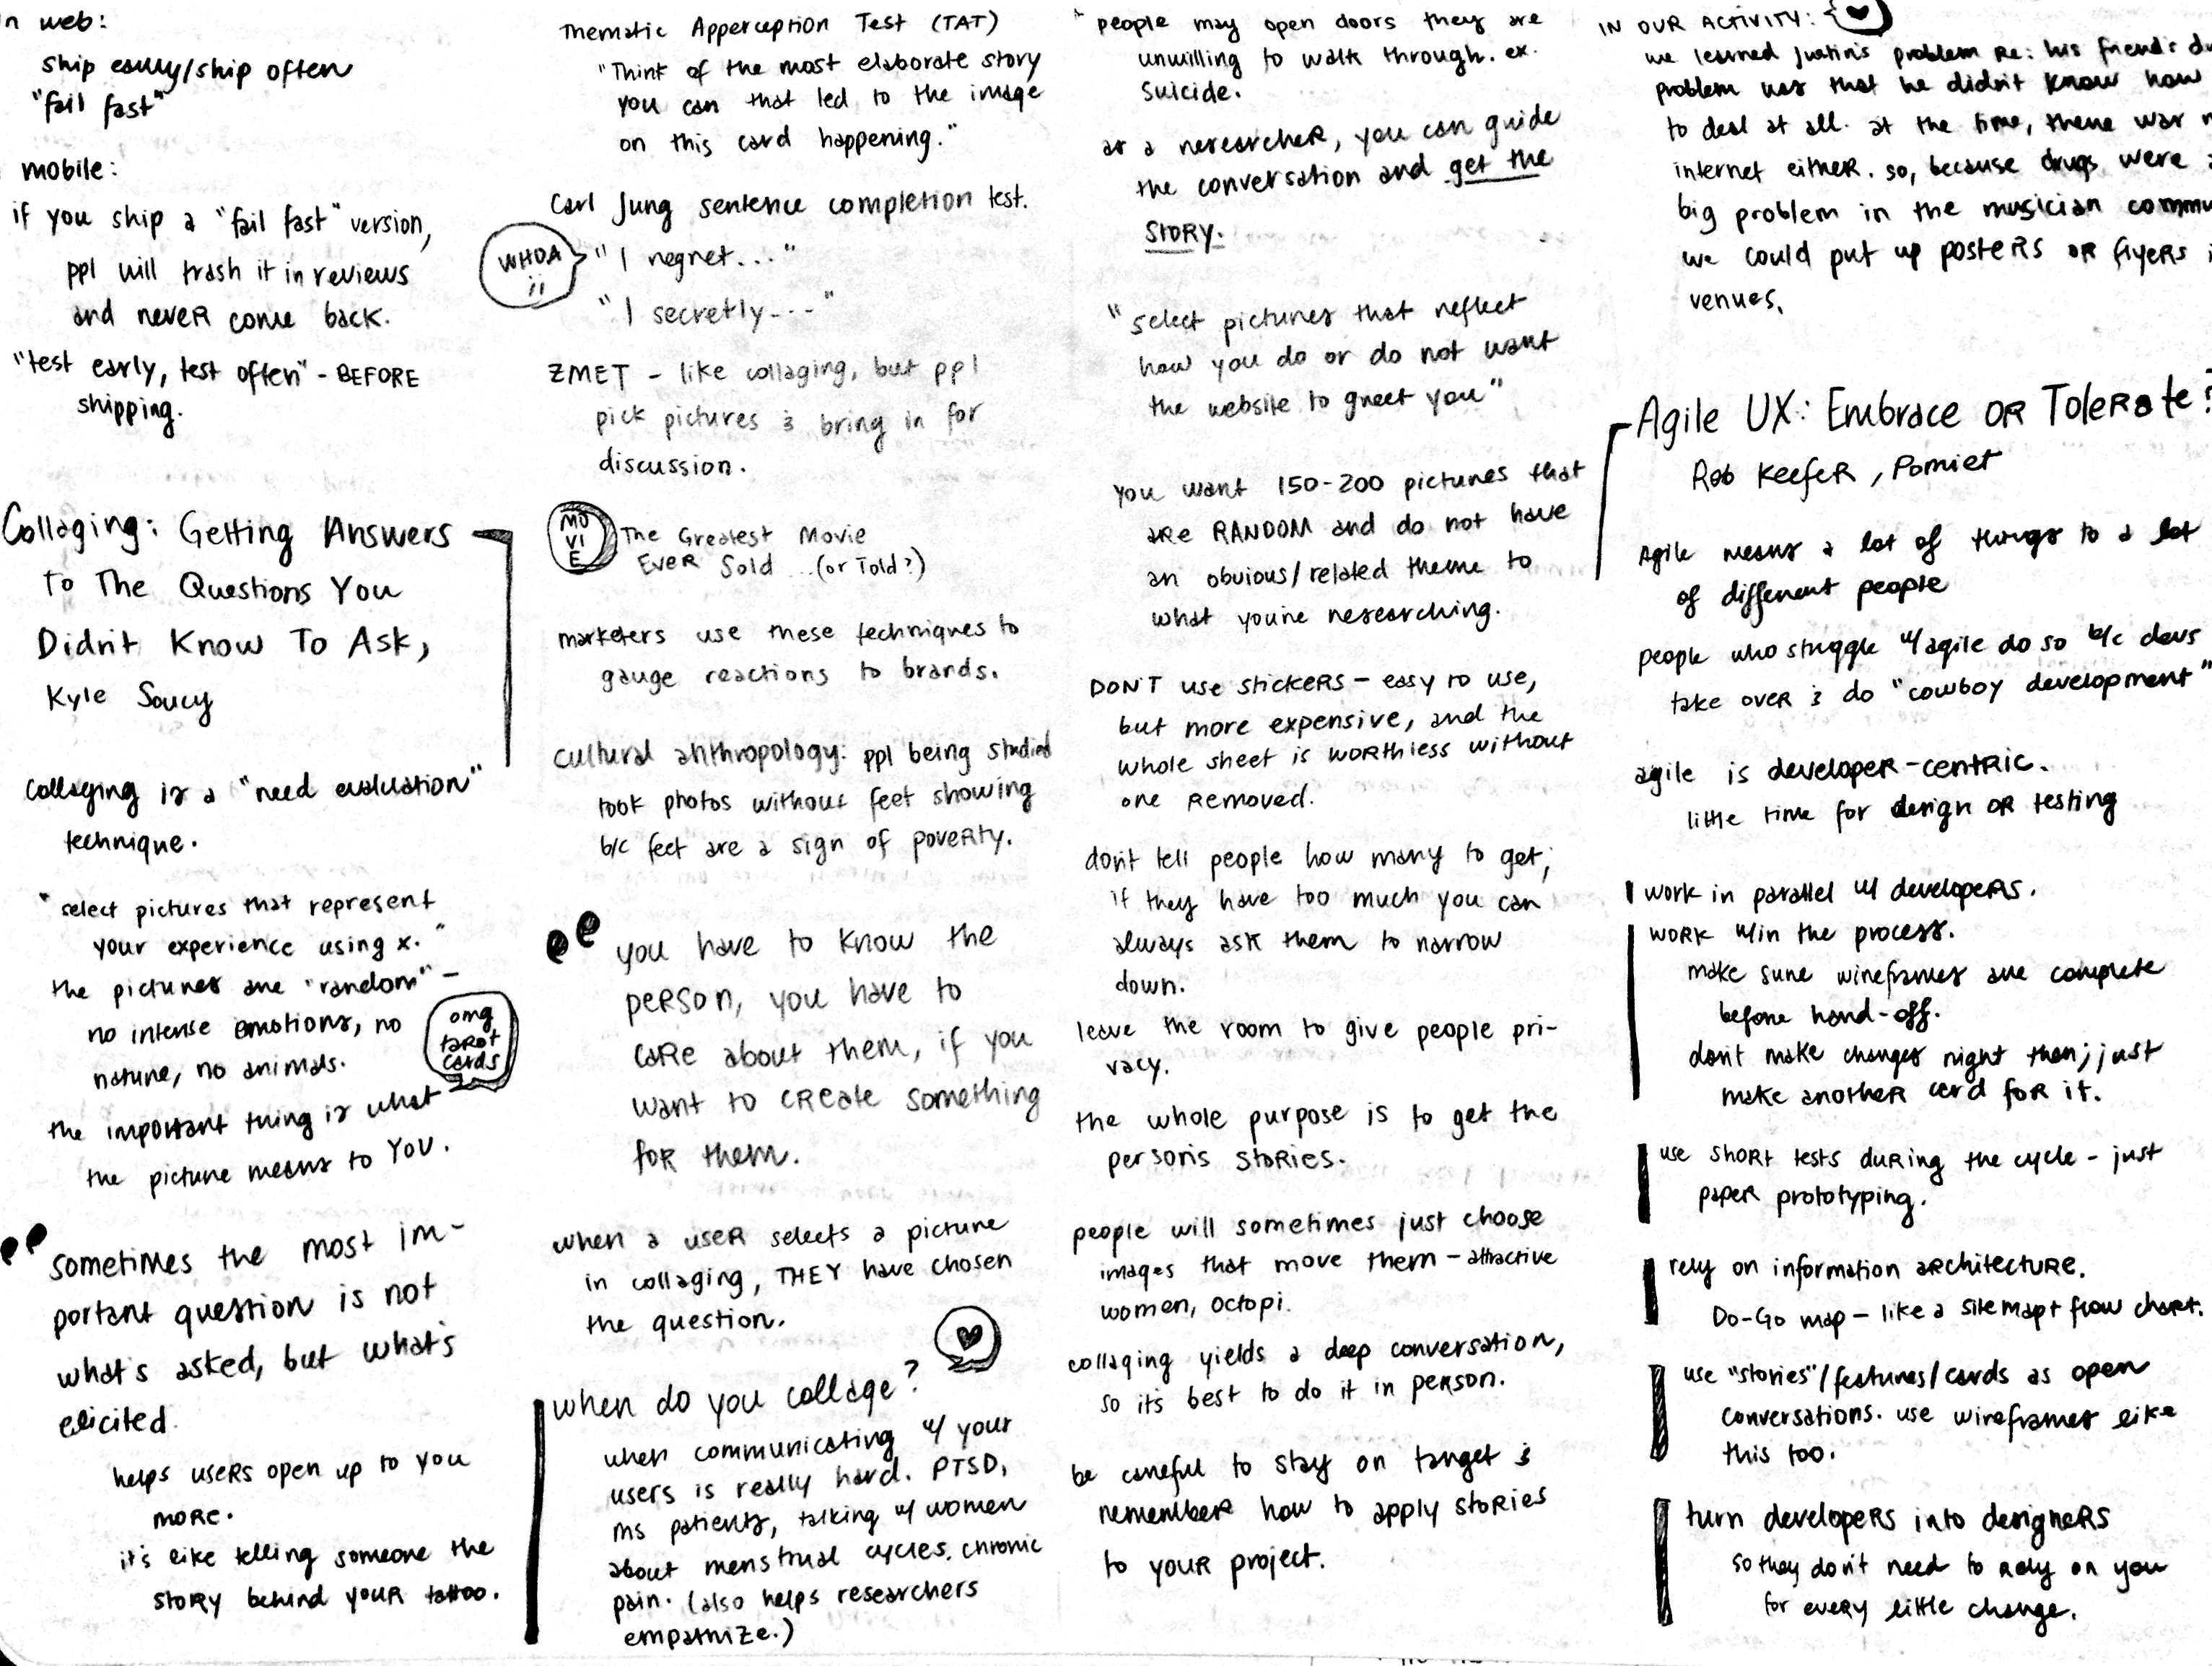 n web:
ship early/ship often
"fail fast"
mobile:
if you ship a "fail fast" version,
ppl will trash it in reviews
and never come back.
"test early, test often" - BEFORE
shipping.
Collaging: Getting Answers
To The Questions You
Didn't Know To Ask,
Kyle Soucy
Collaging is a "need evaluation"
technique.
"select pictures that represent
your experience using x."
the pictures are "random" -
no intense emotions, no
nature, no animals.
omg
tarot
cards
the important thing is what
the picture means to YOU.
" sometimes the most im-
portant question is not
what's asked, but what's
elicited.
helps users open up to you
more.
it's like telling someone the
story behind your tattoo.
Thematic Apperception Test (TAT)
"Think of the most elaborate story
you can that led to the image
on this card happening."
Carl Jung sentence completion test.
WHOA
"I regret..."
"I secretly..."
ZMET - like collaging, but ppl
pick pictures & bring in for
discussion.
MO
VI
E
The Greatest Movie
Ever Sold ...(or Told?)
marketers use these techniques to
gauge reactions to brands.
cultural anthropology: ppl being studied
took photos without feet showing
b/c feet are a sign of poverty.
" you have to know the
person, you have to
care about them, if you
want to create something
for them.
when a user selects a picture
in collaging, THEY have chosen
the question.
when do you collage?
when communicating w/ your
users is really hard. PTSD,
MS patients, talking w/ women
about menstrual cycles. chronic
pain. (also helps researchers
empathize.)
people may open doors they are
unwilling to walk through. ex.
suicide.
as a researcher, you can guide
the conversation and get the
story.
"select pictures that reflect
how you do or do not want
the website to greet you"
you want 150-200 pictures that
are RANDOM and do not have
an obvious/related theme to
what you're researching.
DON'T use stickers - easy to use,
but more expensive, and the
whole sheet is worthless without
one removed.
don't tell people how many to get;
if they have too much you can
always ask them to narrow
down.
leave the room to give people pri-
vacy.
the whole purpose is to get the
person's stories.
people will sometimes just choose
images that move them - attractive
women, octopi.
collaging yields a deep conversation,
so it's best to do it in person.
be careful to stay on target &
remember how to apply stories
to your project.
IN OUR ACTIVITY:
we learned Justin's problem re: his friend's
problem was that he didn't know how
to deal at all. at the time, there was
internet either. so, because drugs were
big problem in the musician
we could put up posters or flyers
venues.
Agile UX: Embrace OR Tolerate?
Rob Keefer, Pomiet
Agile means a lot of things to a lot
of different people
people who struggle w/ agile do so b/c devs
take over & do "cowboy development"
agile is developer-centric.
little time for design or testing
work in parallel w/ developers.
work w/in the process.
make sure wireframes are complete
before hand-off.
don't make changes right then; just
make another card for it.
use short tests during the cycle - just
paper prototyping.
rely on information architecture.
Do-Go map - like a sitemap + flow chart.
use "stories"/features/cards as open
conversations. use wireframes like
this too.
turn developers into designers
so they don't need to rely on you
for every little change.